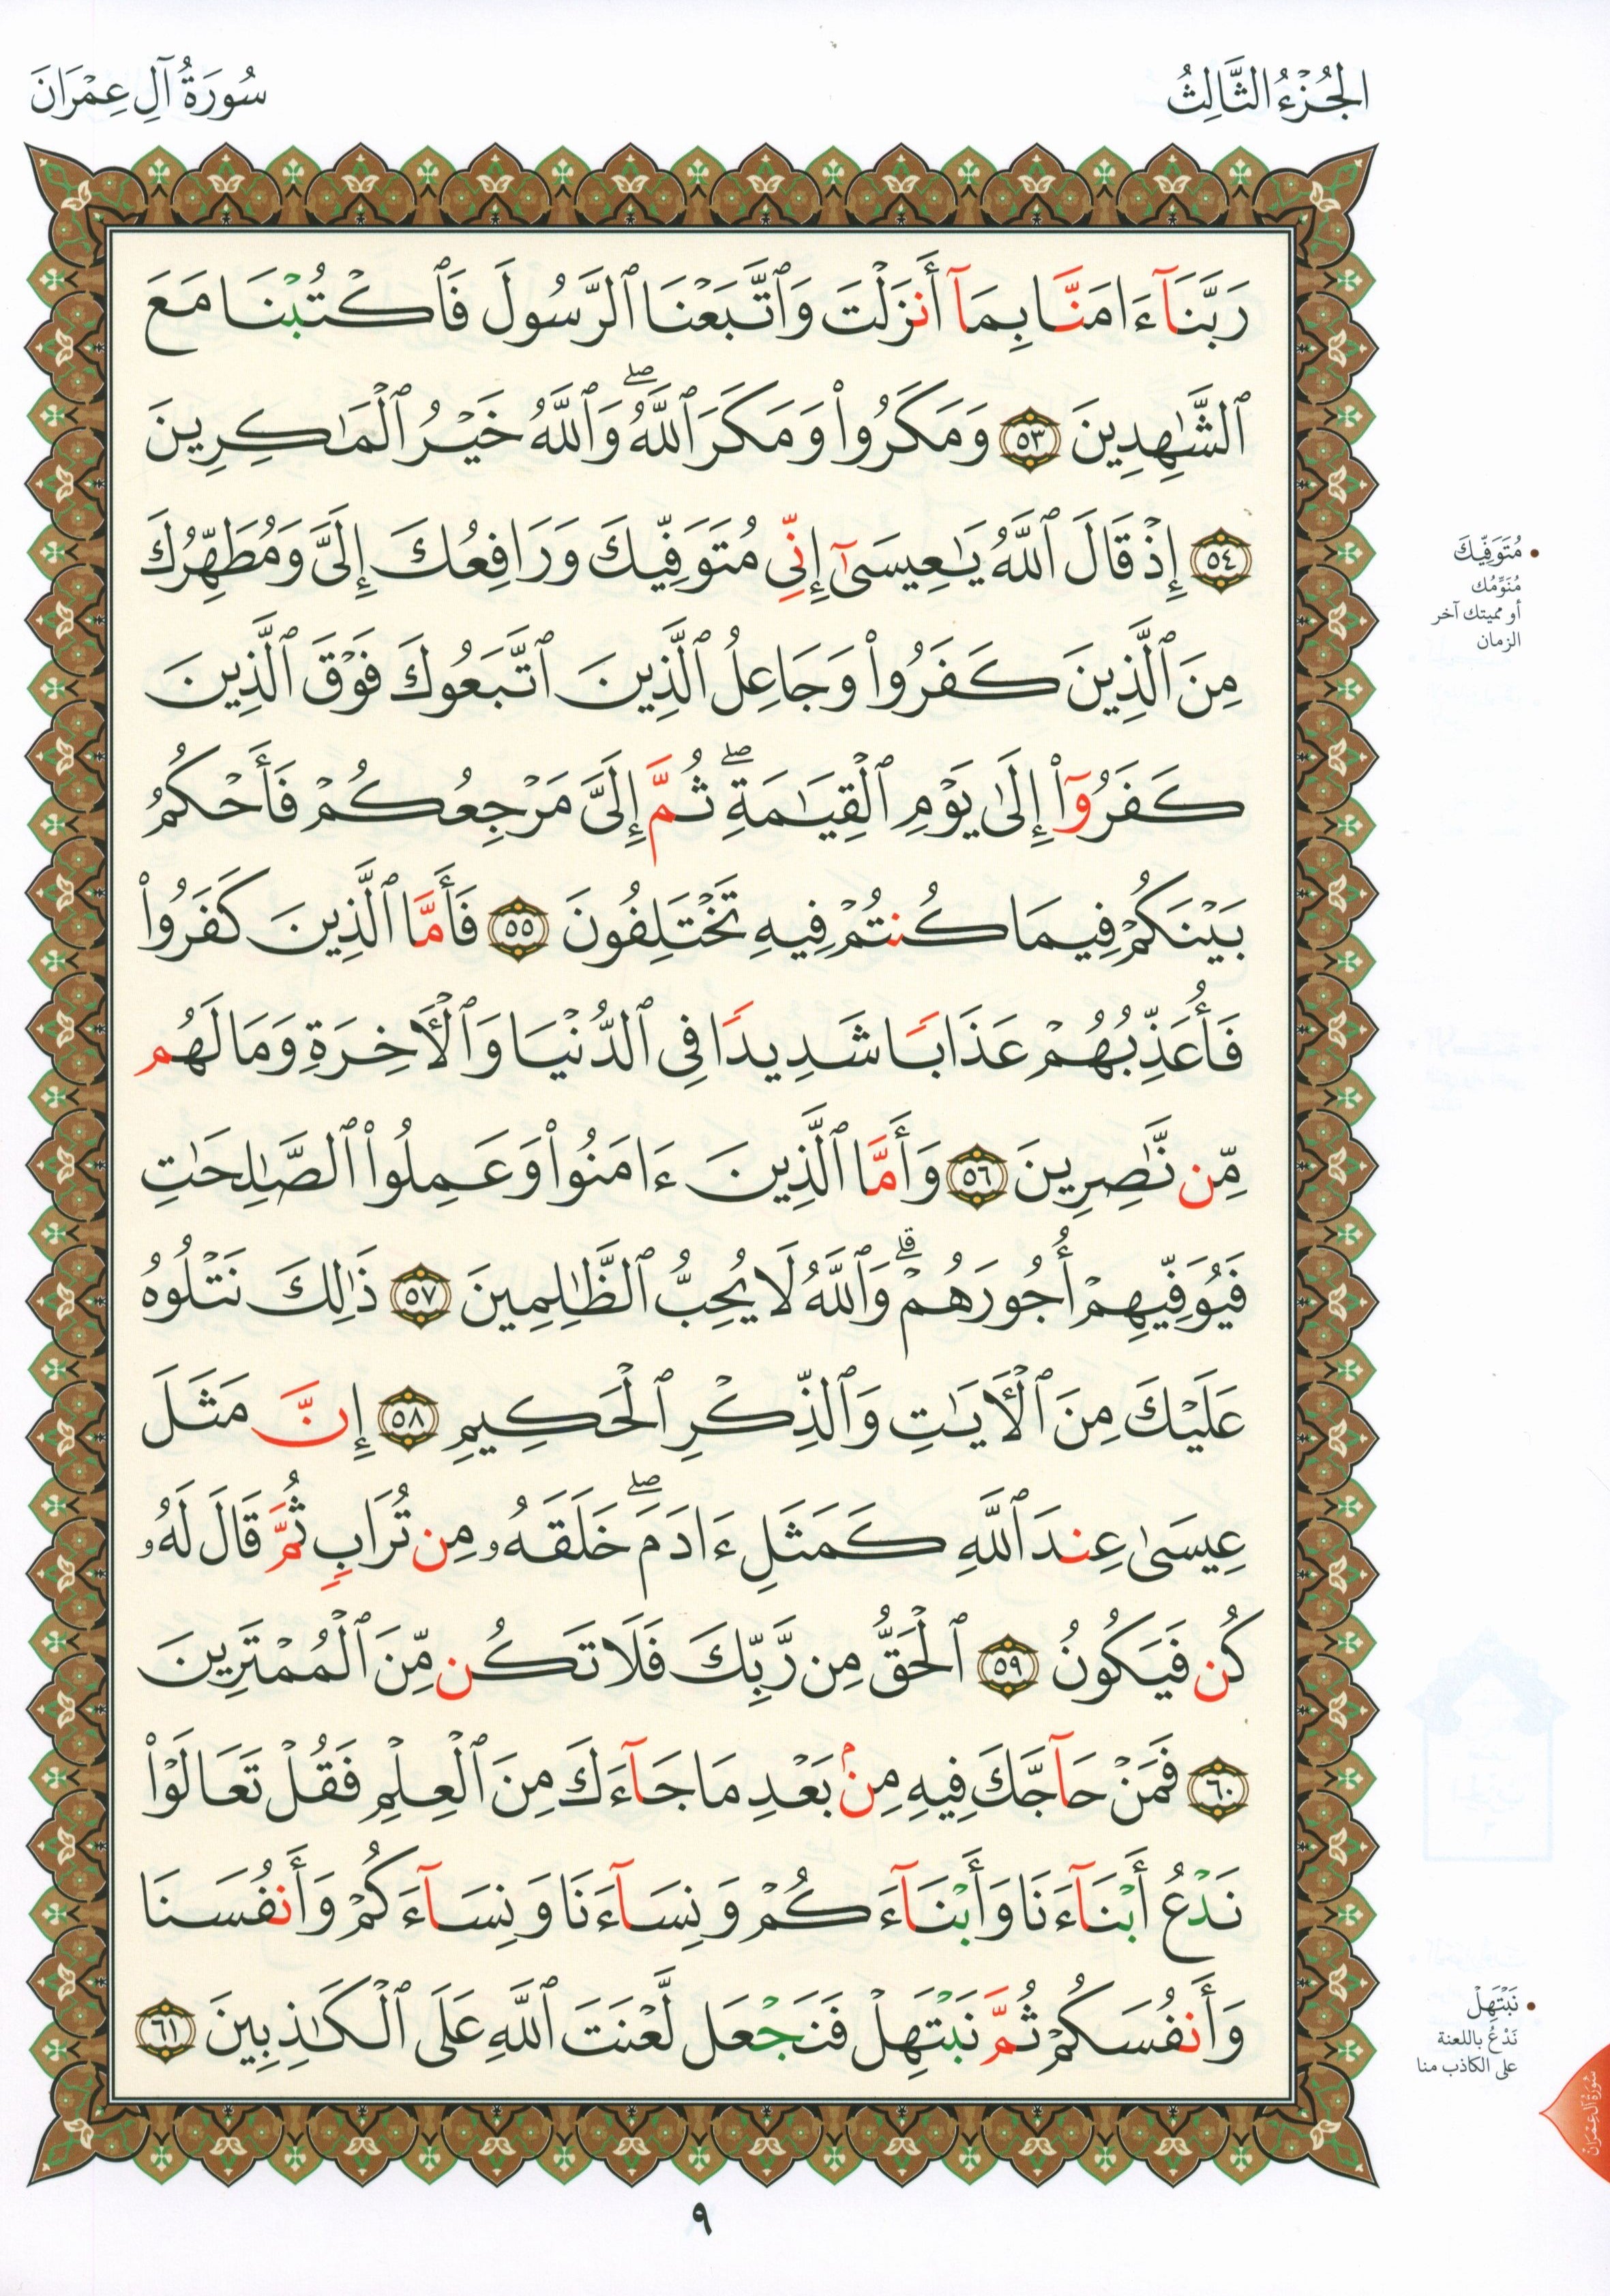 الجُزْءُ الثَّالِثُ
سُورَةُ آلِ عِمْرَانَ
رَبَّنَآ ءَامَنَّا بِمَآ أَنزَلْتَ وَٱتَّبَعْنَا ٱلرَّسُولَ فَٱكْتُبْنَا مَعَ
ٱلشَّٰهِدِينَ ٥٣ وَمَكَرُوا۟ وَمَكَرَ ٱللَّهُ ۖ وَٱللَّهُ خَيْرُ ٱلْمَٰكِرِينَ
٥٤ إِذْ قَالَ ٱللَّهُ يَٰعِيسَىٰٓ إِنِّى مُتَوَفِّيكَ وَرَافِعُكَ إِلَىَّ وَمُطَهِّرُكَ
مِنَ ٱلَّذِينَ كَفَرُوا۟ وَجَاعِلُ ٱلَّذِينَ ٱتَّبَعُوكَ فَوْقَ ٱلَّذِينَ
كَفَرُوٓا۟ إِلَىٰ يَوْمِ ٱلْقِيَٰمَةِ ۖ ثُمَّ إِلَىَّ مَرْجِعُكُمْ فَأَحْكُمُ
بَيْنَكُمْ فِيمَا كُنتُمْ فِيهِ تَخْتَلِفُونَ ٥٥ فَأَمَّا ٱلَّذِينَ كَفَرُوا۟
فَأُعَذِّبُهُمْ عَذَابًا شَدِيدًا فِى ٱلدُّنْيَا وَٱلْأَخِرَةِ وَمَا لَهُم
مِّن نَّٰصِرِينَ ٥٦ وَأَمَّا ٱلَّذِينَ ءَامَنُوا۟ وَعَمِلُوا۟ ٱلصَّٰلِحَٰتِ
فَيُوَفِّيهِمْ أُجُورَهُمْ ۗ وَٱللَّهُ لَا يُحِبُّ ٱلظَّٰلِمِينَ ٥٧ ذَٰلِكَ نَتْلُوهُ
عَلَيْكَ مِنَ ٱلْأَيَٰتِ وَٱلذِّكْرِ ٱلْحَكِيمِ ٥٨ إِنَّ مَثَلَ
عِيسَىٰ عِندَ ٱللَّهِ كَمَثَلِ ءَادَمَ ۖ خَلَقَهُۥ مِن تُرَابٍ ثُمَّ قَالَ لَهُۥ
كُن فَيَكُونُ ٥٩ ٱلْحَقُّ مِن رَّبِّكَ فَلَا تَكُن مِّنَ ٱلْمُمْتَرِينَ
٦٠ فَمَنْ حَآجَّكَ فِيهِ مِنۢ بَعْدِ مَا جَآءَكَ مِنَ ٱلْعِلْمِ فَقُلْ تَعَالَوْا۟
نَدْعُ أَبْنَآءَنَا وَأَبْنَآءَكُمْ وَنِسَآءَنَا وَنِسَآءَكُمْ وَأَنفُسَنَا
وَأَنفُسَكُمْ ثُمَّ نَبْتَهِلْ فَنَجْعَل لَّعْنَتَ ٱللَّهِ عَلَى ٱلْكَٰذِبِينَ ٦١
• مُتَوَفِّيكَ
مُنَوِّمُك
أو مميتك آخر
الزمان
• نَبْتَهِلْ
نَدْعُ باللعنة
على الكاذب منا
سُورَةُ آلِ عِمْرَانَ
٩